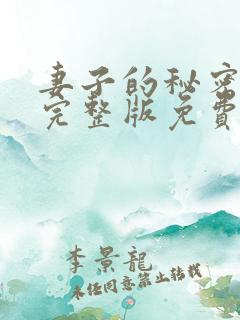 妻子的秘密
完整版免费
李景龍
未经同意禁止转载